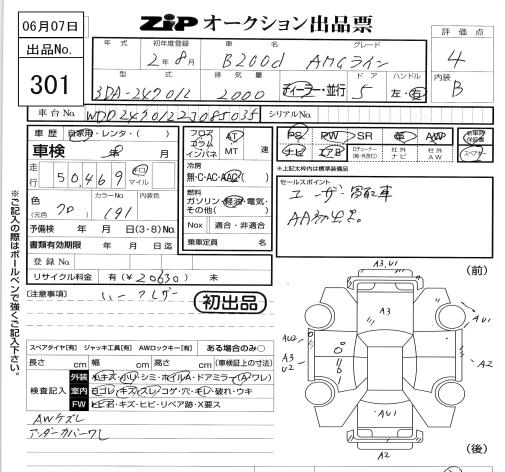 06月07日
出品No.
301
ZiP オークション出品票
年式 初年度登録 車名 グレード
2年8月 B200d AMGライン
型式 排気量 ディーラー・並行 ドア ハンドル
3DA-247012 2000 5 左・右
評価点
4
内装
B
車台No. WDD2470122J085035 シリアルNo.
車歴 自家用・レンタ・( )
車検 年 月
走行 50,469 キロ マイル
色 (元色) クロ カラーNo. 191 内装色
予備検 年 月 日(3・8)No.
書類有効期限 年 月 日迄
登録No.
リサイクル料金 有(¥20630) 未
フロア コラム インパネ AT MT 速
冷房
無・C・AC・AAC
燃料
ガソリン・軽油・電気・その他( )
Nox 適合・非適合
乗車定員 名
PS PW SR 革 AW
ナビ エアB Dチューナー(純・外含む) 社外ナビ 社外AW
新車時保証書
スペアキー
*上記太枠内は標準装備品
セールスポイント
ユーザー買取車
AA初出品。
(注意事項)
初出品
スペアタイヤ[有] ジャッキ工具[有] AWロックキー[有] ある場合のみ○
長さ cm 幅 cm 高さ cm (車検証上の寸法)
検査記入
外装 小キズ・小U・シミ・ホイルA・ドアミラー(A・ワレ)
室内 ヨゴレ・キズ・スレ・コゲ・穴・キレ・破れ・ウキ
FW トビ石・キズ・ヒビ・リペア跡・X要ス
AWケズレ
アンダーカバーワレ
※ご記入の際はボールペンで強くご記入下さい。
(前)
A3,U1
A3
AU1
AU2
A3
U2
A2
AU1
A2
(後)